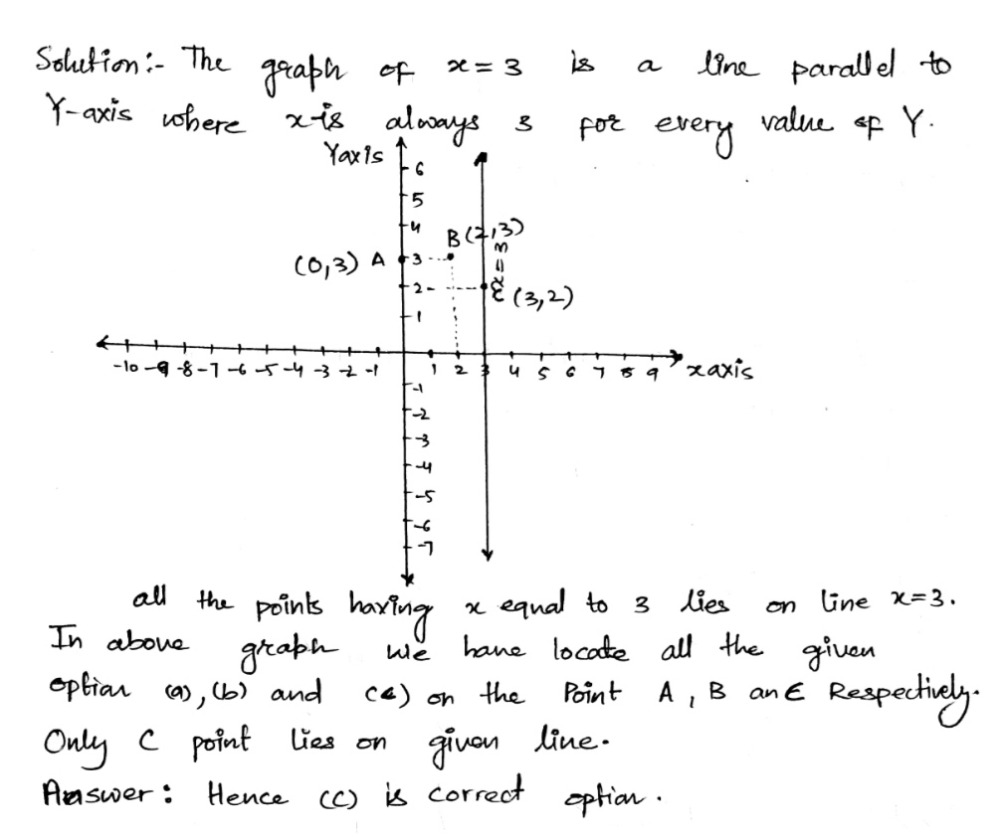 Solution:- The graph of x = 3 is a line parallel to
Y-axis where x is always 3 for every value of Y.
Yaxis
6
5
4
B (2,3)
(0,3) A 3
x = 3
2
C (3,2)
1
-10 -9 -8 -7 -6 -5 -4 -3 -2 -1 1 2 3 4 5 6 7 8 9 x axis
-1
-2
-3
-4
-5
-6
-7
all the points having x equal to 3 lies on line x=3.
In above graph we have locate all the given
option (a), (b) and (c) on the Point A, B an C Respectively.
Only C point lies on given line.
Answer: Hence (C) is correct option.